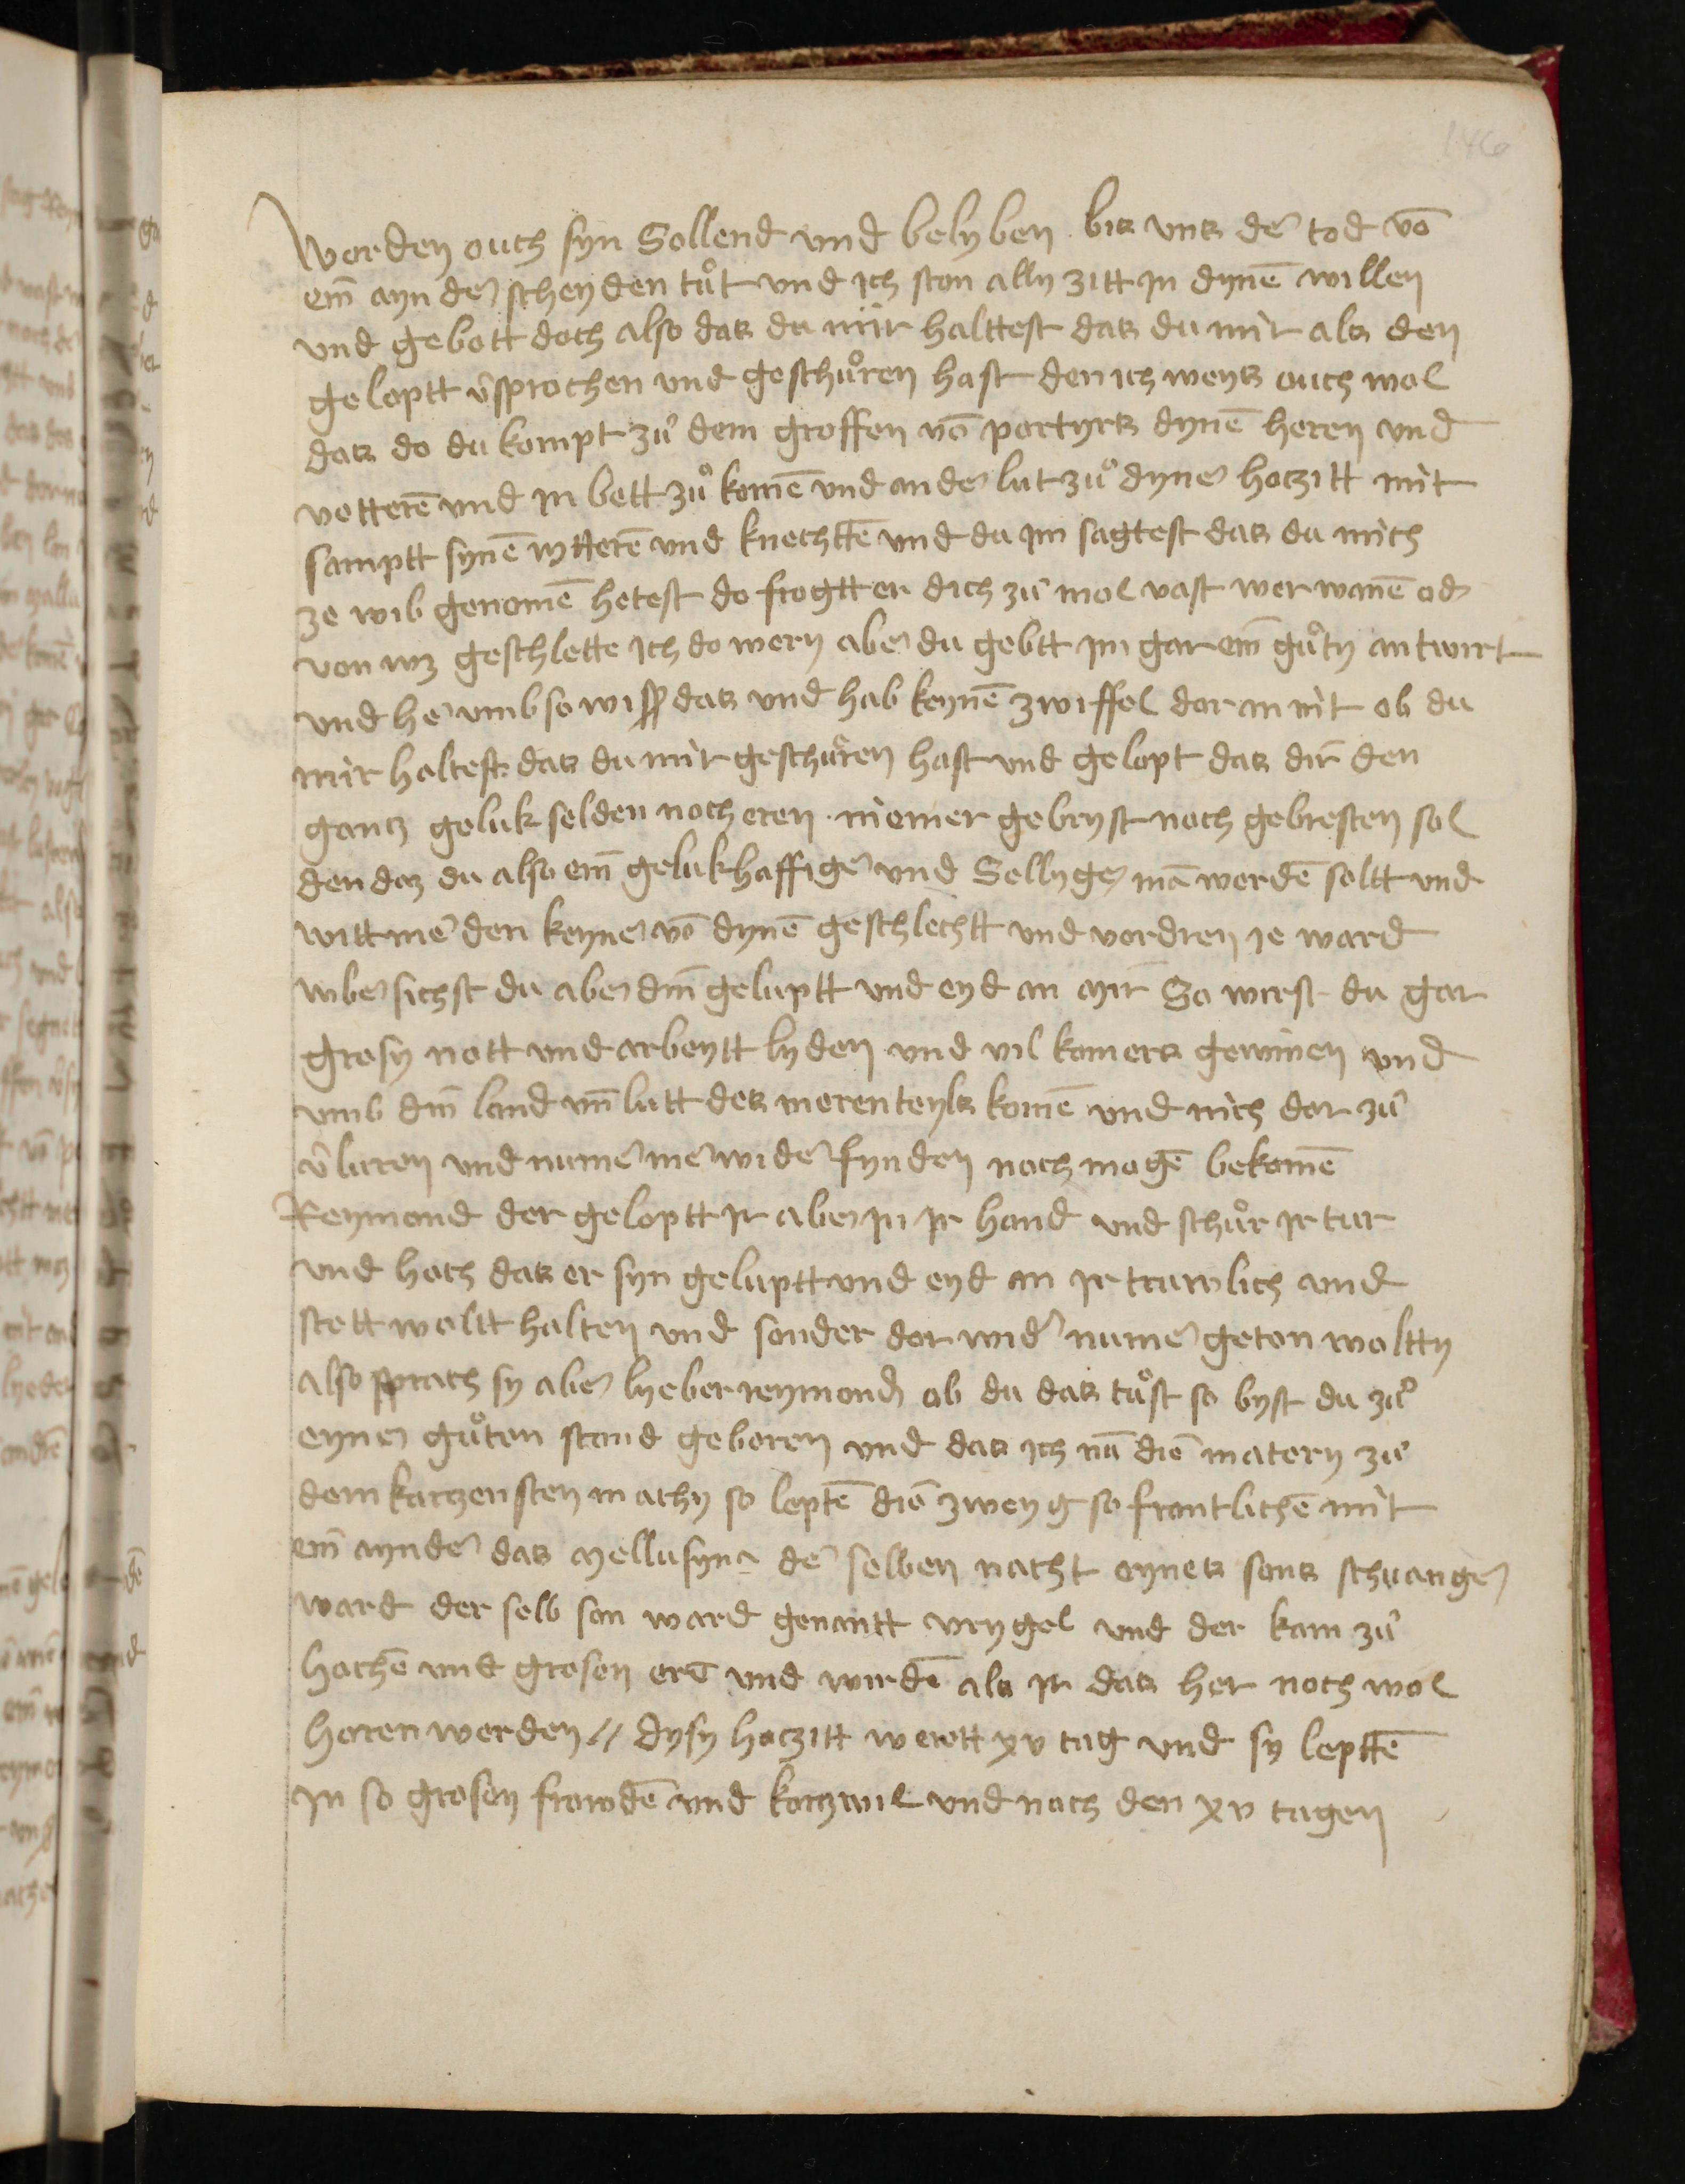 146
Werden ouch syn Sollend und belyben bis uns dē tod vō
em̄ ayn dē schey den tůt und ich ston ally zitt jn dynē willen
und gebott doch also das du mir halttest das du mir als den
geloptt v̄sprochen und geschůren hast den ich weys ouch wol
das do du kompt zů dem groffen vō portyrs dynē heren und
vetterē und jn bett zů komē und ander lut zů dyner hoczitt mit
samptt synē rytterē und knechttē und du jm sagtest das du mich
ze wib genomē hetest do frogtt er dich zů mol vast wer wanē od
von wz geschlette ich do wery aber du gebtt jm gar em̄ gůty antwirt
und he umb so wiss das und hab keynē zwiffel dar an nit ob du
mir haltest das du mir geschůren hast und gelopt das dir den
gantz geluk selden noch eren niemer gebryst noch gebresten sol
den daz du also em̄ gelukhaffiger und Sellyger mā werdē soltt und
witt me den keyner vō dynē geschlechtt und vordren je ward
uber sichst du aber din̄ geluptt und eyd an mir So wirst du gar
grosy nott und arbeytt lyden und vil komers gewinen und
umb din̄ land un̄ lutt des merenteyls komē und mich dar zů
v̄luren und numer me wider fynden noch mogē bekomē
Reymond der geloptt jr aber jn jr hand und schůr jr tur
und hoch das er syn geluptt und eyd an jr truwlich und
stett woltt halten und sonder dar wider numer geton woltty
also sprach sy aber lyeber reymond ob du das tůst so byst du zů
eyner gůten stand geboren und das ich nū die matery zů
dem kurzensten machy so leptē die zwey g so frontlichē mit
em̄ aynder das mellusyna der selben nacht eynes sons schwanger
ward der selb son ward genantt vrygel und der kam zů
hochē und grosen erē und wirdē als jr das her noch wol
heren werden // dysy hoczitt werott xv tag und sy lepttē
jn so grosen frowdē und korzwil und noch den xv tagen